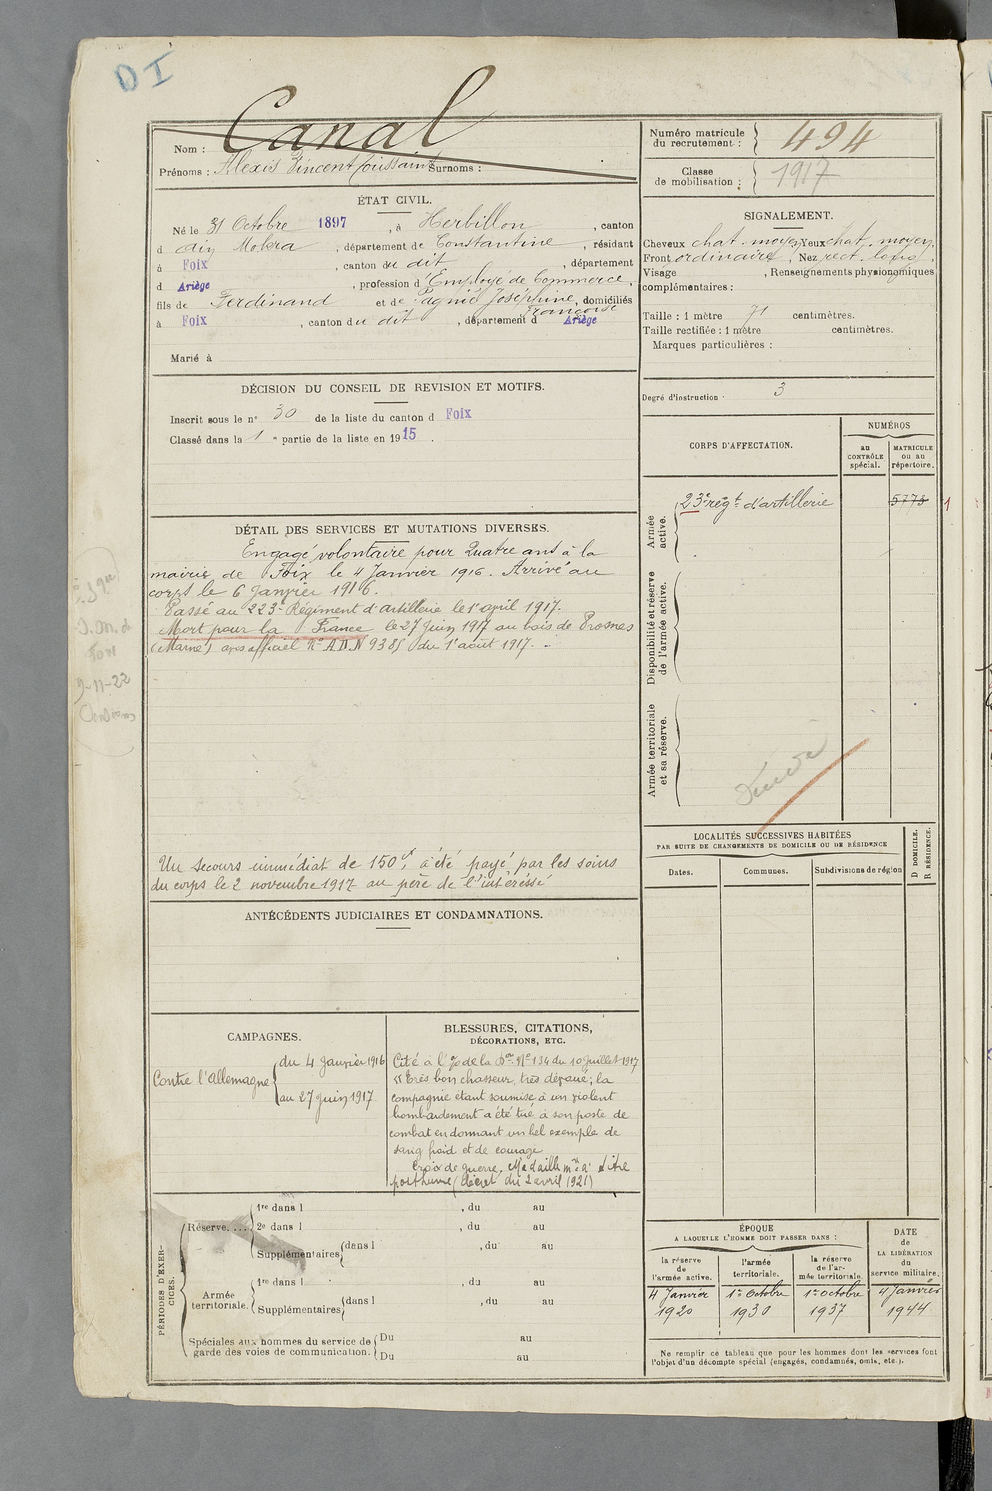 DI
Nom : Canal
Prénoms : Alexis Vincent Toussaint Surnoms :
Numéro matricule du recrutement : 494
Classe de mobilisation : 1917
ÉTAT CIVIL.
Né le 31 Octobre 1897, à Herbillon, canton
d Aïn Mokra, département de Constantine, résidant
à Foix, canton du dit, département
d Ariège, profession d'Employé de Commerce,
fils de Ferdinand et de Pagnié Joséphine, domiciliés
Françoise
à Foix, canton du dit, département d Ariège
Marié à
SIGNALEMENT.
Cheveux chat. moyen, Yeux chat. moyen.
Front ordinaire, Nez rect. long,
Visage , Renseignements physionomiques
complémentaires :
Taille : 1 mètre 71 centimètres.
Taille rectifiée : 1 mètre centimètres.
Marques particulières :
Degré d'instruction 3
DÉCISION DU CONSEIL DE REVISION ET MOTIFS.
Inscrit sous le n° 30 de la liste du canton d Foix
Classé dans la 1 e partie de la liste en 1915.
CORPS D'AFFECTATION.
NUMÉROS
au CONTRÔLE spécial.
MATRICULE ou au répertoire.
Armée active.
23e régt d'artillerie
5775
1
Disponibilité et réserve de l'armée active.
Armée territoriale et sa réserve.
DÉTAIL DES SERVICES ET MUTATIONS DIVERSES.
Engagé volontaire pour Quatre ans à la
mairie de Foix le 4 Janvier 1916. Arrivé au
corps le 6 Janvier 1916.
Passé au 223e Régiment d'artillerie le 1er april 1917.
Mort pour la France le 27 Juin 1917 au bois de Prosnes
(Marne) avis officiel N° AD.N 9385 du 1er août 1917.
9-11-22
Un secours immédiat de 150f, a été payé, par les soins
du corps le 2 novembre 1917 au père de l'intéréssé
LOCALITÉS SUCCESSIVES HABITÉES
PAR SUITE DE CHANGEMENTS DE DOMICILE OU DE RÉSIDENCE
Dates.
Communes.
Subdivisions de région
D DOMICILE.
R RÉSIDENCE.
ANTÉCÉDENTS JUDICIAIRES ET CONDAMNATIONS.
CAMPAGNES.
Contre l'Allemagne
du 4 Janvier 1916
au 27 Juin 1917
BLESSURES, CITATIONS,
DÉCORATIONS, ETC.
Cité à l'o/ de la Don N° 134 du 10 Juillet 1917
"Très bon chasseur, très dévoué; la
compagnie étant soumise à un violent
bombardement a été tué à son poste de
combat en donnant un bel exemple de
sang froid et de courage
Croix de guerre. Médaille mre à titre
posthume (décret du 2 avril 1921)
PÉRIODES D'EXERCICES.
Réserve....
1re dans l , du au
2e dans l , du au
Supplémentaires dans l , du au
Armée territoriale.
1re dans l , du au
Supplémentaires dans l , du au
Spéciales aux hommes du service de garde des voies de communication.
Du au
Du au
ÉPOQUE
A LAQUELLE L'HOMME DOIT PASSER DANS :
la réserve de l'armée active.
l'armée territoriale.
la réserve de l'armée territoriale.
DATE de LA LIBÉRATION du service militaire.
4 Janvier 1920
1er Octobre 1930
1er octobre 1937
4 Janvier 1944
Ne remplir ce tableau que pour les hommes dont les services font
l'objet d'un décompte spécial (engagés, condamnés, omis, etc.).